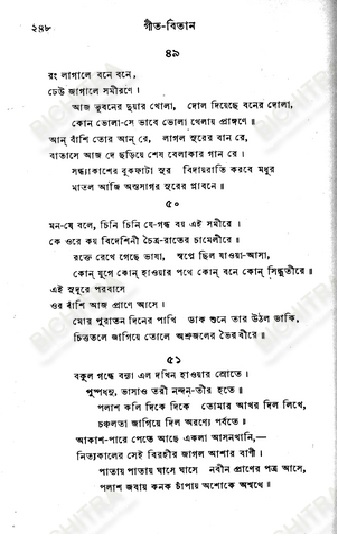 ২৪৮ গীত-বিতান
৪৯
রং লাগালে বনে বনে,
ঢেউ জাগালে সমীরণে ৷
আজ ভুবনের দুয়ার খোলা, দোল দিয়েছে বনের দোলা,
কোন ভোলা-সে ভাবে ভোলা খেলায় প্রাঙ্গণে ॥
আন্ বাঁশি তোর আন্ রে, লাগল সুরের বান রে,
বাতাসে আজ দে ছড়িয়ে শেষ বেলাকার গান রে ৷
সন্ধ্যাকাশের বুকফাটা সুর বিদায়রাতি করবে মধুর
মাতল আজি অস্তসাগর সুরের প্লাবনে ॥
৫০
মন-যে বলে, চিনি চিনি যে-গন্ধ বয় এই সমীরে ॥
কে ওরে কয় বিদেশিনী চৈত্র-রাতের চামেলীরে ॥
রক্তে রেখে গেছে ভাষা, স্বপ্নে ছিল যাওয়া-আসা,
কোন্ যুগে কোন্ হাওয়ার পথে কোন্ বনে কোন্ সিন্ধুতীরে ॥
এই সুদূরে পরবাসে
ওর বাঁশি আজ প্রাণে আসে ৷
মোর পুরাতন দিনের পাখি ডাক শুনে তার উঠল ডাকি,
চিত্ততলে জাগিয়ে তোলে অশ্রুজলের ভৈরবীরে ॥
৫১
বকুল গন্ধে বন্যা এল দখিন হাওয়ার স্রোতে ৷
পুষ্পধনু, ভাসাও তরী নন্দন-তীর হতে ॥
পলাশ কলি দিকে দিকে তোমার আখর দিল লিখে,
চঞ্চলতা জাগিয়ে দিল অরণ্যে পর্বতে ॥
আকাশ-পারে পেতে আছে একলা আসনখানি,—
নিত্যকালের সেই বিরহীর জাগল আশার বাণী ৷
পাতায় পাতায় ঘাসে ঘাসে নবীন প্রাণের পত্র আসে,
পলাশ জবায় কনক চাঁপায় অশোকে অশ্বথে ॥